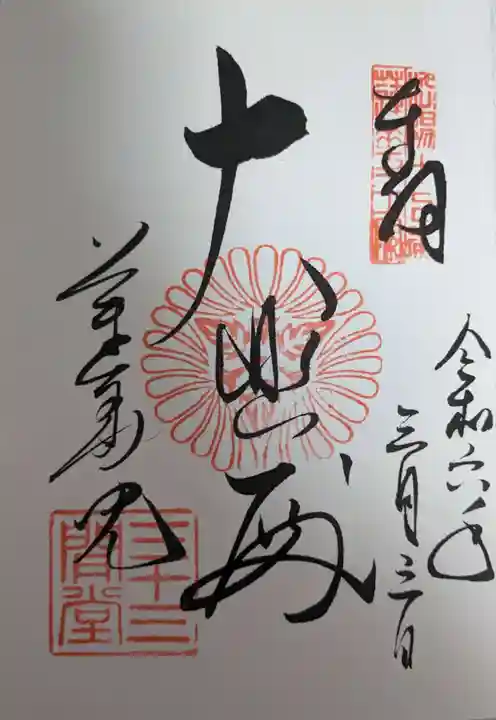 奉拝
令和六年
三月三日
大悲殿
蓮華王院
三十三間堂